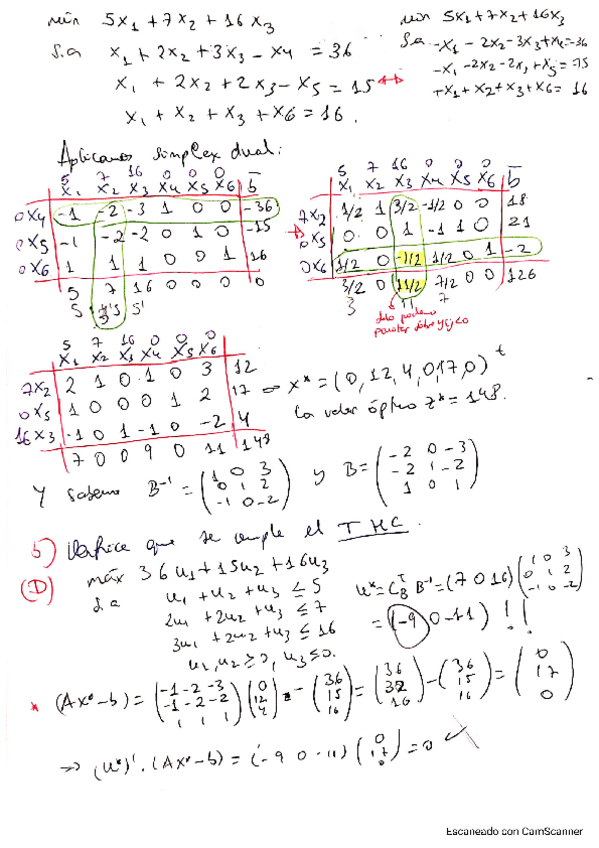 min 5x1 + 7x2 + 16x3
s.a x1 + 2x2 + 3x3 - x4 = 36
x1 + 2x2 + 2x3 - x5 = 15 ↔
x1 + x2 + x3 + x6 = 16.
min 5x1 + 7x2 + 16x3
s.a -x1 - 2x2 - 3x3 + x4 = -36
-x1 - 2x2 - 2x3 + x5 = -15
+x1 + x2 + x3 + x6 = 16
Aplicamos simplex dual:
5 7 16 0 0 0
x1 x2 x3 x4 x5 x6 b
0x4 -1 -2 -3 1 0 0 -36
0x5 -1 -2 -2 0 1 0 -15
0x6 1 1 1 0 0 1 16
5 7 16 0 0 0 0
5 7 16 0 0 0
x1 x2 x3 x4 x5 x6 b
7x2 1/2 1 3/2 -1/2 0 0 18
0x5 0 0 1 -1 1 0 21
0x6 1/2 0 -1/2 1/2 0 1 -2
3/2 0 11/2 7/2 0 0 126
3 11 7
5 7 16 0 0 0
x1 x2 x3 x4 x5 x6
7x2 2 1 0 1 0 3 12
0x5 1 0 0 0 1 2 17
16x3 -1 0 1 -1 0 -2 4
7 0 0 9 0 11 148
⇒ x* = (0, 12, 4, 0, 17, 0)t
La valor óptimo z* = 148.
Y sabemos B-1 = (1 0 3
0 1 2
-1 0 -2) y B = (-2 0 -3
-2 1 -2
1 0 1)
b) Verifice que se cumple el THC.
(D) máx 36u1 + 15u2 + 16u3
s.a u1 + u2 + u3 ≤ 5
2u1 + 2u2 + u3 ≤ 7
3u1 + 2u2 + u3 ≤ 16
u1, u2 ≥ 0, u3 ≤ 0.
u* = CBT B-1 = (7 0 16) (1 0 3
0 1 2
-1 0 -2)
= (-9 0 -11) !!
* (Ax* - b) = (-1 -2 -3
-1 -2 -2
1 1 1) (0
12
4) - (36
15
16) = (36
32
16) - (36
15
16) = (0
17
0)
⇒ (u*)' · (Ax* - b) = (-9 0 -11) (0
17
0) = 0 ✓
Escaneado con CamScanner